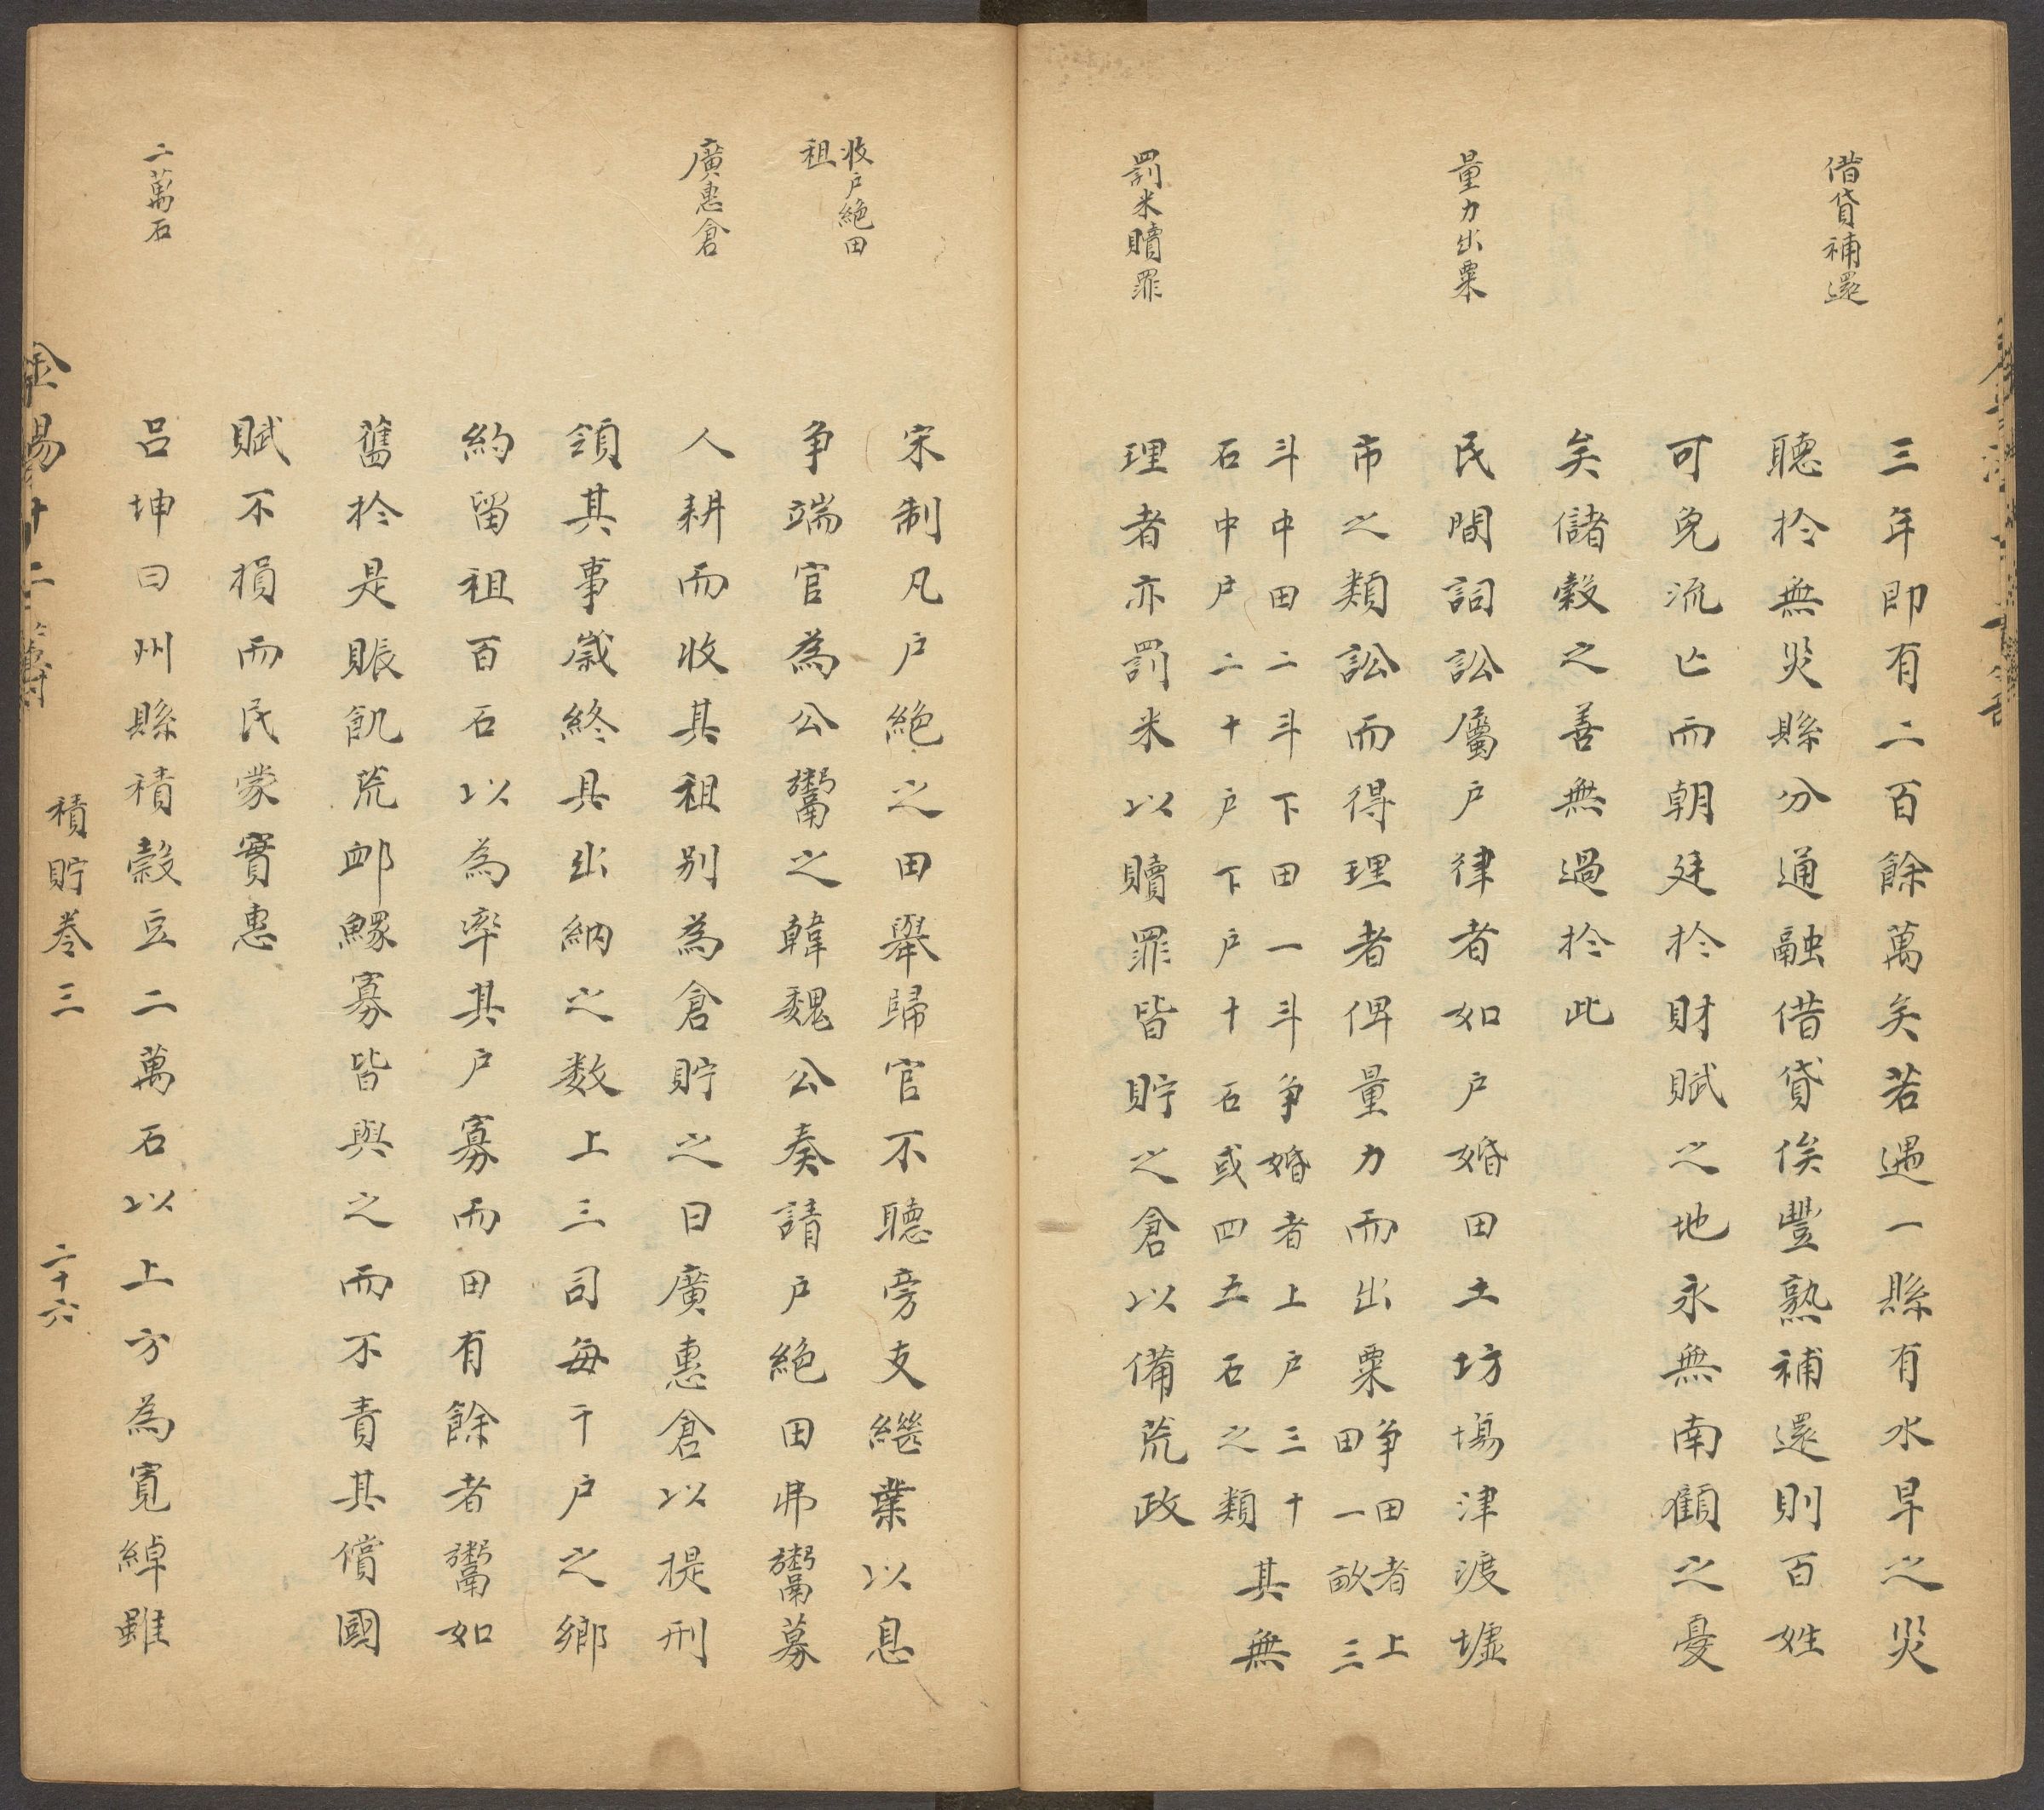 借貸補還
三年即有二百餘萬矣若遇一縣有水旱之災
聽扵無災縣分通融借貸俟豐熟補還則百姓
可免流亡而朝廷扵財賦之地永無南顧之憂
矣儲穀之善無過扵此
量力出粟
民間詞訟屬户律者如户婚田土坊塲津渡墟
市之類訟而得理者俾量力而出粟
争田者上
田一畝三
斗中田二斗下田一斗争婚者上户三十
石中户二十户下户十石或四五石之類
其無
罰米贖罪
理者亦罰米以贖罪皆貯之倉以備荒政
收户絶田
祖
宋制凡户絶之田舉歸官不聽旁支繼業以息
争端官為公鬻之韓魏公奏請户絶田弗鬻募
廣惠倉
人耕而收其祖别為倉貯之曰廣惠倉以提刑
領其事歲終具出納之数上三司每千户之鄉
約留祖百石以為率其户寡而田有餘者鬻如
舊扵是賑飢荒卹鰥寡皆與之而不責其償國
賦不損而民蒙實惠
二萬石
吕坤曰州縣積穀豆二萬石以上方為寬綽雖
積貯卷三
二十六